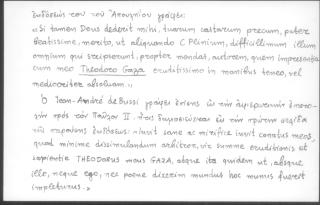 ἐκδόσεως τοῦ τοῦ Ἀπουληίου γράφει:
«Si tamen Deus dederit mihi, tuarum castarum precum, pater
beatissime, merito, ut aliquando C Plinium, difficillimum illum
omnium qui scripserunt, propter mendas, autorem, quem impressorta
cum meo Theodoro Gaza eruditissimo in manibus teneo, vel
mediocriter absolvam.»
ὁ Jean-André de Bussi γράφει ἐπίσης εἰς τὴν ἀφιέρωσιν
πρὸς τὸν Παῦλον II. εἰς τὴν πρώτην σελίδα
τῆς παρούσης ἐκδόσεως: «iuvit sane ac mirifice iuvit conatus meos,
quod minime dissimulandum arbitror, vir summe eruditionis et
sapientie THEODORUS meus GAZA, atque ita quidem ut, absque
illo, neque ego, nec poene dixerim mundus hoc munus fuerit
impleturus.»